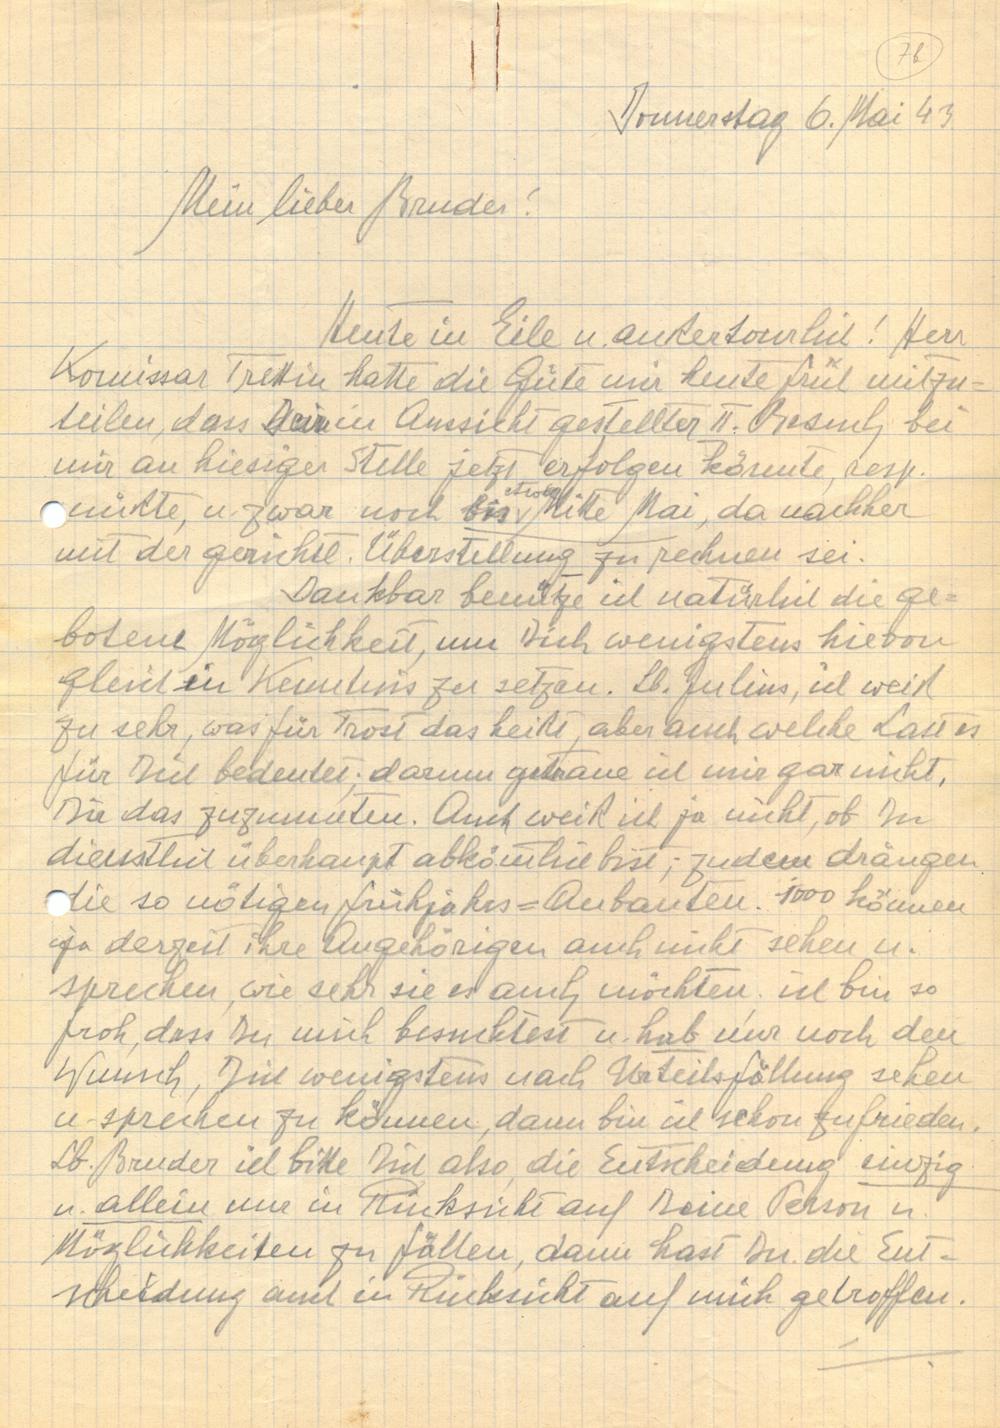 7b
Donnerstag 6. Mai 43
Mein lieber Bruder!
Heute in Eile u. außertourlich! Herr
Komissar Trettin hatte die Güte mir heute früh mitzu=
teilen, dass Dein in Aussicht gestellter II. Besuch bei
mir an hiesiger Stelle jetzt erfolgen könnte, resp.
müßte, u. zwar noch bis etwa Mitte Mai, da nachher
mit der gerichtl. Überstellung zu rechnen sei.
Dankbar benütze ich natürlich die ge=
botene Möglichkeit, um Dich wenigstens hievon
gleich in Kenntnis zu setzen. Lb. Julius, ich weiß
zu sehr, was für Trost das heißt, aber auch welche Last es
für Dich bedeutet; darum getraue ich mir gar nicht,
Dir das zuzumuten. Auch weiß ich ja nicht, ob Du
dienstlich überhaupt abkömmlich bist; zudem drängen
die so nötigen Frühjahrs=Anbauten. 1000 können
ja derzeit ihre Angehörigen auch nicht sehen u.
sprechen, wie sehr sie es auch möchten. ich bin so
froh, dass Du mich besuchtest u. hab nur noch den
Wunsch, Dich wenigstens nach Urteilsfällung sehen
u. sprechen zu können, dann bin ich schon zufrieden.
Lb. Bruder ich bitte Dich also, die Entscheidung einzig
u. allein nur in Rücksicht auf Deine Person u.
Möglichkeiten zu fällen, dann hast Du die Ent=
scheidung auch in Rücksicht auf mich getroffen.